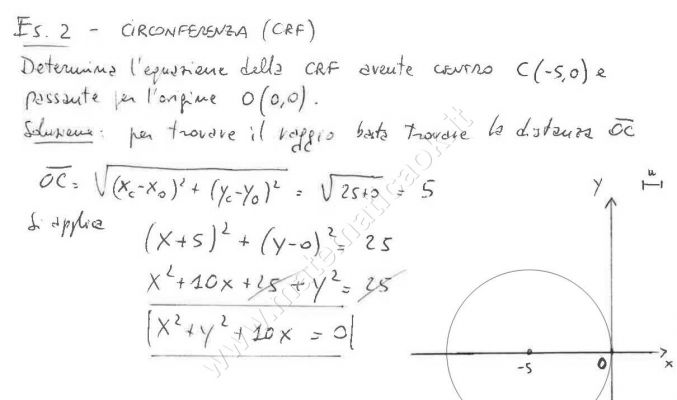 Es. 2 - CIRCONFERENZA (CRF)
Determina l'equazione della CRF avente CENTRO C(-5,0) e
passante per l'origine O(0,0).
Soluzione: per trovare il raggio basta trovare la distanza O̅C̅
O̅C̅ = √((x_C-x_O)² + (y_C-y_O)²) = √(25+0) = 5
Si applica
(x+5)² + (y-0)² = 25
x² + 10x + 25 + y² = 25
x² + y² + 10x = 0
y
u
-5 O x
www.matematicaok.it